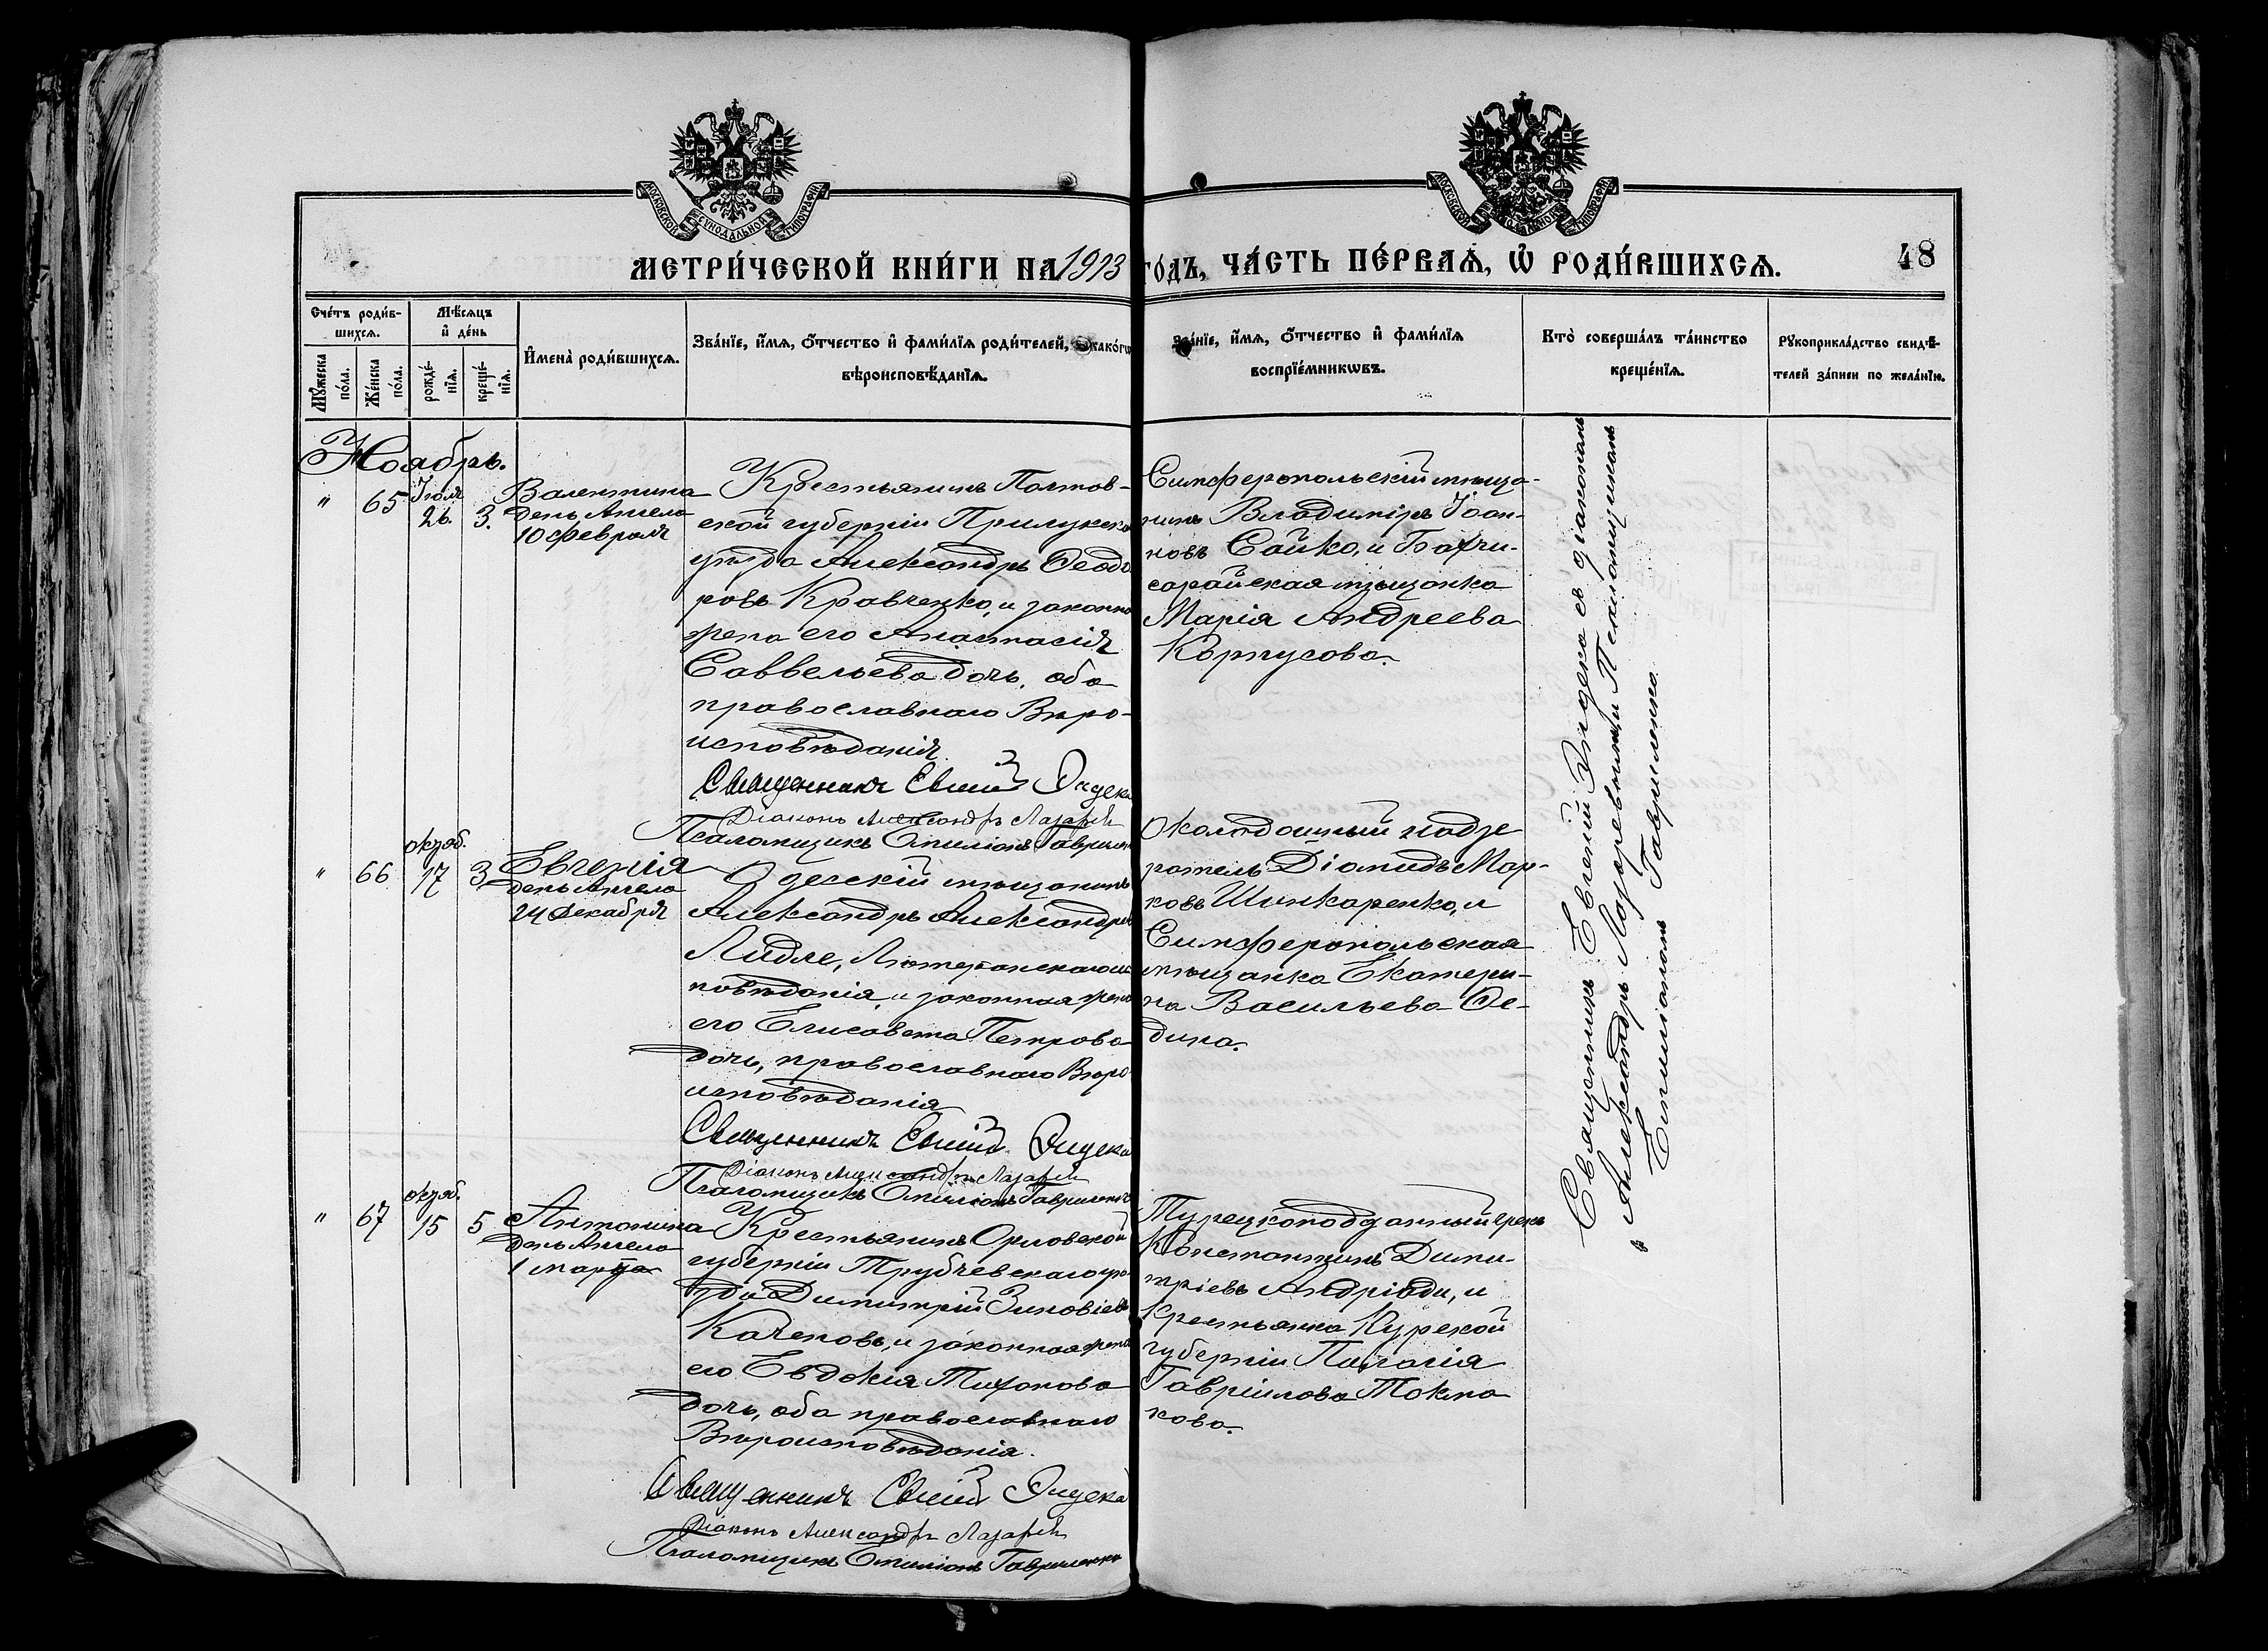 МОСКОВСКОЙ СѴНОДАЛЬНОЙ ТИПОГРАФІИ
МОСКОВСКОЙ СѴНОДАЛЬНОЙ ТИПОГРАФІИ
МЕТРИ́ЧЕСКОЙ КНИ́ГИ НА 1913 ГО́ДЪ, ЧА́СТЬ ПЕ́РВАѦ, Ѡ҆ РОДИ́ВШИХСѦ.
48
Сче́тъ роди́в-
шихсѧ.
Мꙋ́жеска
по́ла.
Же́нска
по́ла.
Мѣ́сѧцъ
и҆ де́нь
рожде́-
нїѧ.
креще́-
нїѧ.
И҆мена̀ роди́вшихсѧ.
Зва́нїе, и҆́мѧ, ѻ҆́тчество и҆ фами́лїѧ роди́телей, и҆ како́гѡ
вѣроисповѣ́данїѧ.
Зва́нїе, и҆́мѧ, ѻ҆́тчество и҆ фами́лїѧ
воспрїе́мникѡвъ.
Кто̀ соверша́лъ та́инство
креще́нїѧ.
Рꙋкоприкла́дство свидѣ́-
телей за́писи по жела́нїю.
Ноябрь.
" 65 Іюля 26. 3.
Валентина
день Ангела
10 февраля
Крестьянинъ Полтав-
ской губерніи Прилукска
уѣзда Александръ Ѳеодо
ровъ Кравченко, и законна
жена его Анастасія
Саввельева дочь, оба
православнаго Вѣро-
исповѣданія.
Священникъ Евгеній Эндека
Діаконъ Александръ Лазаревъ
Псаломщикъ Емиліанъ Гавриленко
Симферопольскій мѣща-
нинъ Владиміръ Іоан-
новъ Сайко, и Бахчи-
сарайская мѣщанка
Марія Андреева
Корпусова.
Священникъ Евгеній Эндека съ діакономъ
Александръ Лазаревымъ, и Псаломщикомъ
Емиліаномъ Гавриленко.
" 66 октяб. 17 3
Евгенія
день Ангела
24 декабря
Одесскій мѣщанинъ
Александръ Александров
Лидле, Лютеранскаго ис
повѣданія, и законная жена
его Елисавета Петрова
дочь, православнаго Вѣро
исповѣданія
Священникъ Евгеній Эндека
Діаконъ Александръ Лазаревъ
Псаломщикъ Емиліанъ Гавриленко
Околодошный надзе
ратель Діомидъ Мар-
ковъ Шинкаренко, и
Симферопольская
мѣщанка Екатери-
на Васильева Ѳе-
дина.
" 67 октяб. 15 5
Антонина
день Ангела
1 марта
Крестьянинъ Орловской
губерніи Трубчевскаго уѣ
зда Димитрій Зиновіевъ
Каченовъ, и законная жена
его Евдокія Тихонова
дочь, оба православнаго
Вѣроисповѣданія.
Священникъ Евгеній Эндека
Діаконъ Александръ Лазаревъ
Псаломщикъ Емиліанъ Гавриленко
Турецкоподданный грекъ
Константинъ Дими-
тріевъ Андріади, и
Крестьянка Курской
губерніи Пелагія
Гавріилова Токма
кова.